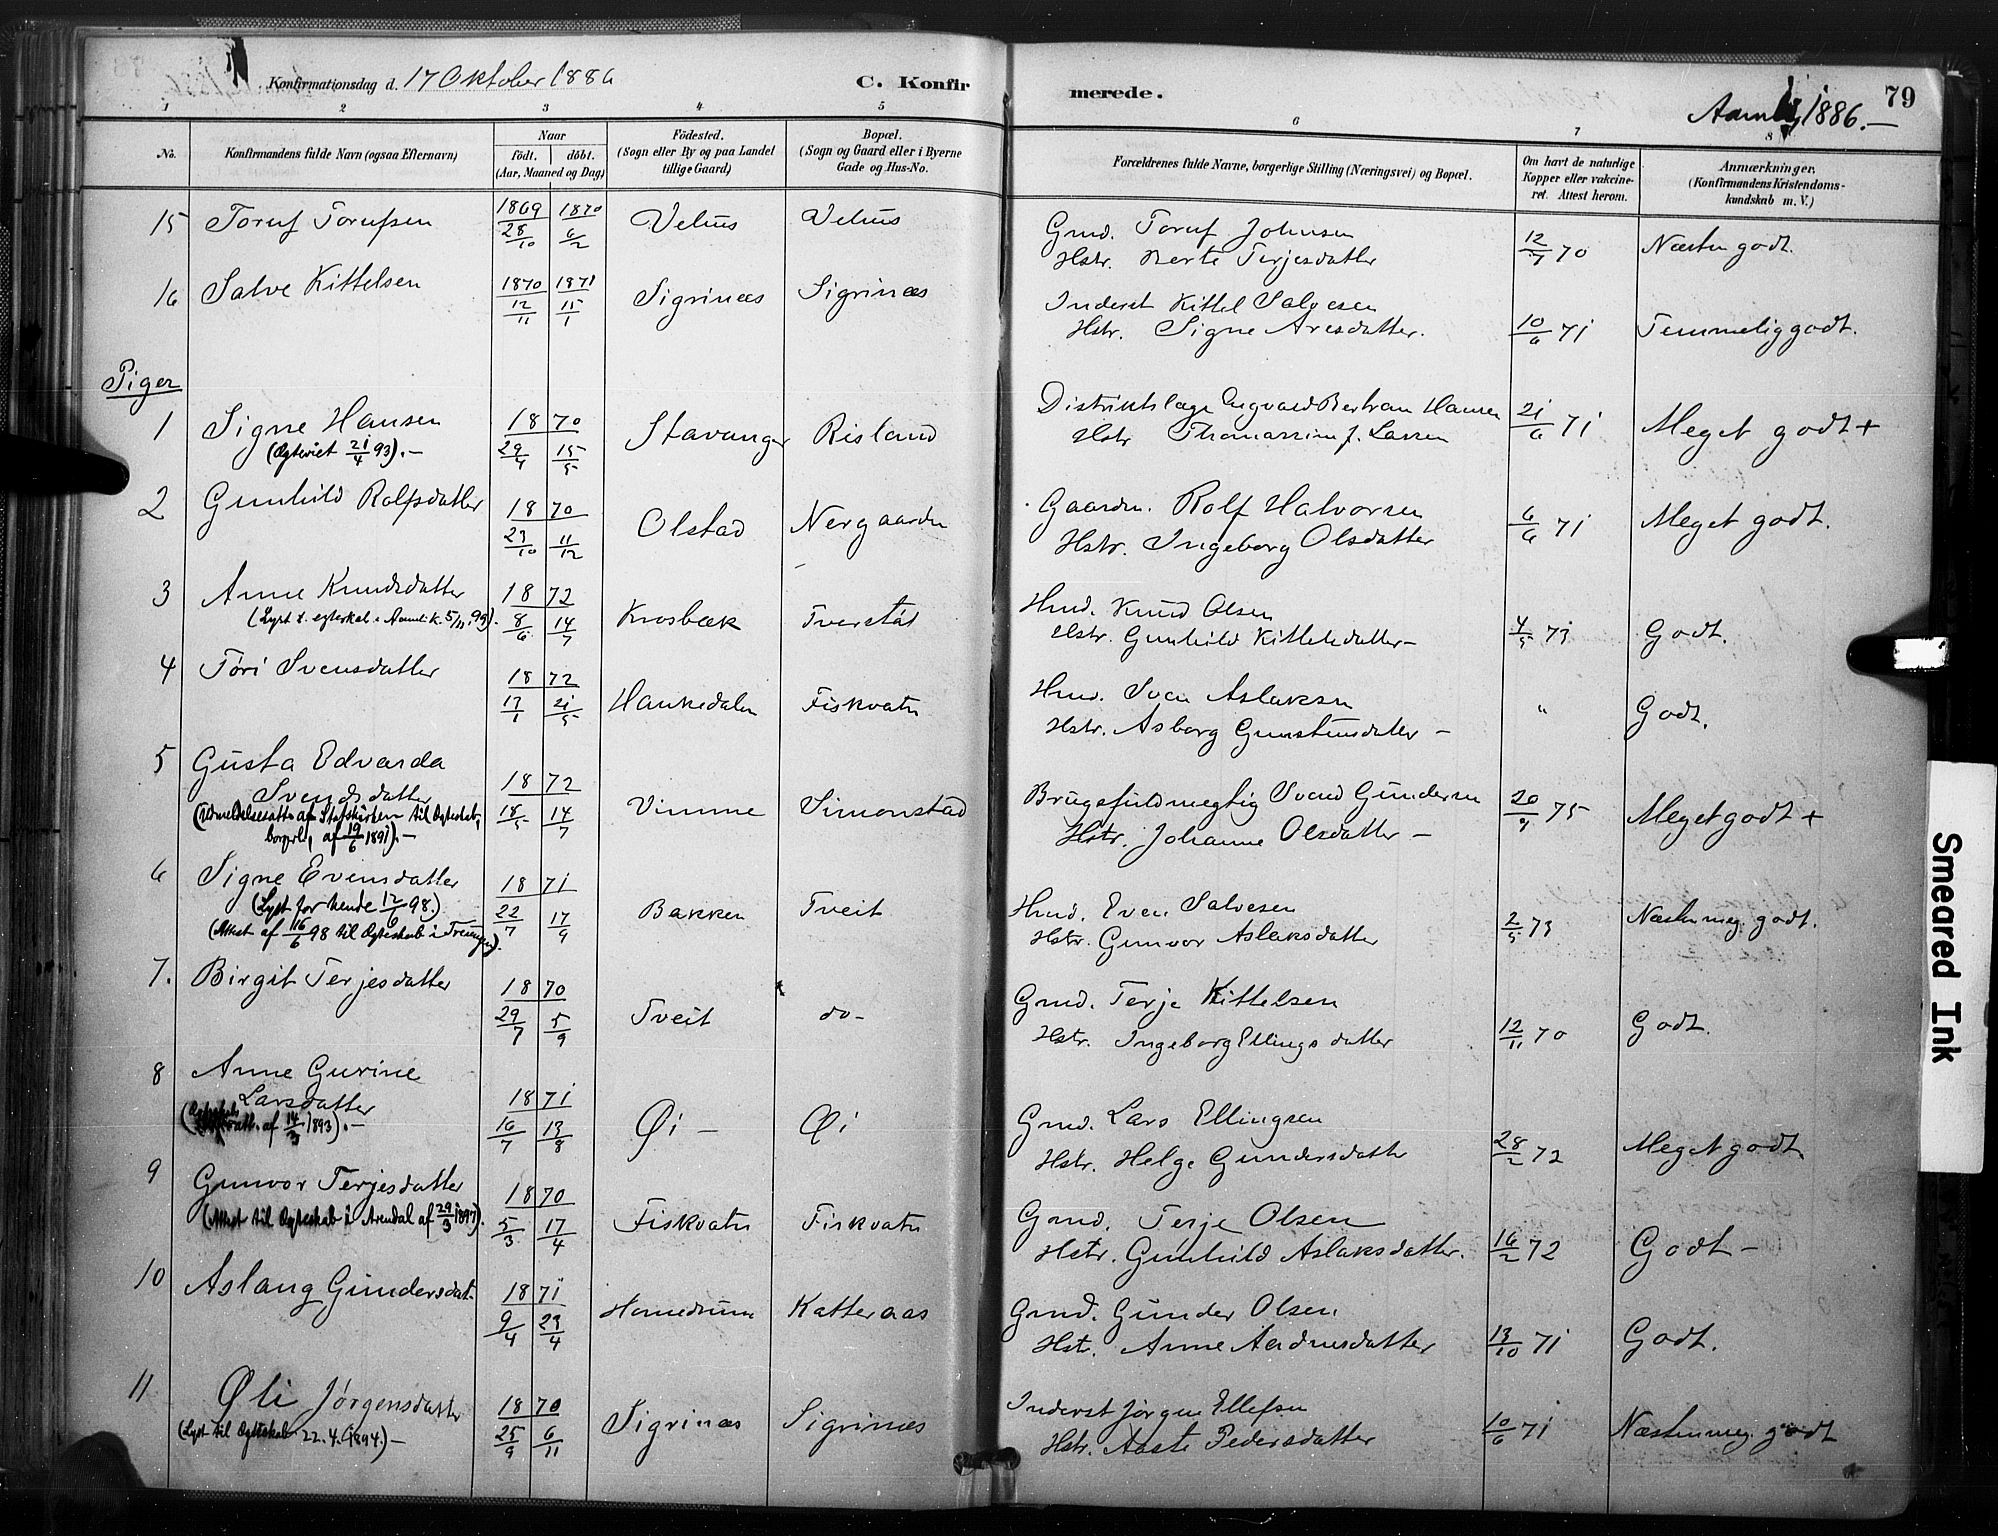 Konfirmationsdag d. 17 Oktober 1886
C. Konfirmerede.
1886. —
79
1 2 3 4 5 6 7 8
No.
Konfirmandens fulde Navn (ogsaa Efternavn)
Naar
födt. döbt.
(Aar, Maaned og Dag)
Födested.
(Sogn eller By og paa Landet
tillige Gaard)
Bopæl.
(Sogn og Gaard eller i Byerne
Gade og Hus-No.
Forældrenes fulde Navne, borgerlige Stilling (Næringsvei) og Bopæl.
Om havt de naturlige
Kopper eller vakcine-
ret. Attest herom.
Anmærkninger.
(Konfirmandens Kristendoms-
kundskab m. V.)
15 Toruf Torufsen 1869 28/10 1870 6/2 Vehus Vehus Gmd. Toruf Johnsen 12/7 70 Næsten godt.
Hstr. Berte Terjesdatter
16 Salve Kittelsen 1870 12/11 1871 15/1 Sigrinæs Sigrinæs Inderst Kittel Salvesen 10/6 71 Temmelig godt.
Hstr. Signe Aresdatter.
Piger
1 Signe Hansen 1870 29/4 15/5 Stavanger Risland Bertram Hansen 21/6 71 Meget godt +
(Ægteviet 21/4 93). — Hstr Larsen
2 Gunhild Rolfsdatter 1870 23/10 11/12 Olstad Nergaarden Gaardm. Rolf Halvorsen 6/6 71 Meget godt.
Hstr. Ingeborg Olsdatter
3 Anne Knudsdatter 1872 8/6 14/7 Krosbæk Tverstøl Hmd. Knud Olsen 4/5 73 Godt.
(Lyst t. egteskab i Aamli k. 5/11.99). Hstr. Gunhild Kittelsdatter —
4 Tøri Svensdatter 1872 17/1 21/5 Haukedalen Fiskvatn Hmd. Sven Aslaksen " Godt.
Hstr. Asborg Gunstensdatter —
5 Gusta Edvarda 1872 18/5 14/7 Vimme Simonstad Brugsfuldmegtig Svend Gundersen 20/9 75 Meget godt +
Svendsdatter Hstr. Johanne Olsdatter —
(Udmeldelsesatt. af Statskirken til Ægteskab,
borgerl, af 19/6 1891). —
6 Signe Evensdatter 1871 22/7 17/9 Bakken Tveit Hmd. Even Salvesen 2/5 73 Næsten meg. godt.
(Lyst for hende 12/6 98.) Hstr. Gunvor Aslaksdatter
(Attest af 16/6 98 til Ægteskab i Treungen).
7. Birgit Terjesdatter 1870 29/7 5/9 Tveit do - Gmd. Terje Kittelsen 12/11 70 Godt.
Hstr. Ingeborg Ellingsdatter
8 Anne Gurine 1871 16/7 13/8 Øi — Øi Gmd. Lars Ellingsen 28/2 72 Meget godt.
Larsdatter Hstr. Helge Gundersdatter
(Ægteskabsatt. af 14/3 1893). —
9 Gunvor Terjesdatter 1870 5/3 17/4 Fiskvatn Fiskvatn Gmd. Terje Olsen 16/2 72 Godt —
(Attest til Ægteskab i Arendal af 29/3 1897). Hstr. Gunhild Aslaksdatter.
10 Aslaug Gundersdat. 1871 9/4 23/4 Homedrum Katteraas Gmd. Gunder Olsen 13/10 71 Godt.
Hstr. Anne
11 Øli Jørgensdatter 1870 25/9 6/11 Sigrinæs Sigrinæs Inderst Jørgen Ellefsen 10/6 71 Næsten meg. godt
(Lyst til Ægteskab 22.4.1894.) — Hstr. Aaste Pedersdatter
Smeared Ink